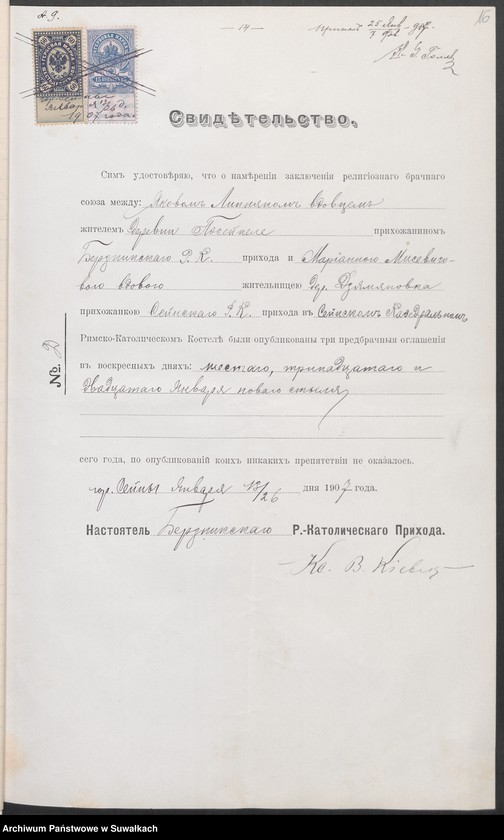 16
— 14 —
Свидѣтельство.
Симъ удостовѣряю, что о намѣреніи заключенія религіознаго брачнаго
союза между: Яковомъ Липинякомъ вдовцемъ
жителемъ Деревни Посейнеле прихожаниномъ
Бержникскаго Р. К. прихода и Маріанною Мисевичо-
вого вдового жительницею дер. Дзямяновка
прихожанкою Сейнскаго Р. К. прихода въ Сейнскомъ Каѳедральномъ
Римско-Католическомъ Костелѣ были опубликованы три предбрачныя оглашенія
въ воскресныхъ дняхъ: шестаго, тринадцатаго и
двадцатаго Января новаго стиля
№. 2
сего года, по опубликованій коихъ никакихъ препятствіи не оказалось.
гор. Сейны Января 13/26 дня 1907 года.
Настоятель Бержникскаго Р.-Католическаго Прихода.
Кс. В.
Archiwum Państwowe w Suwałkach